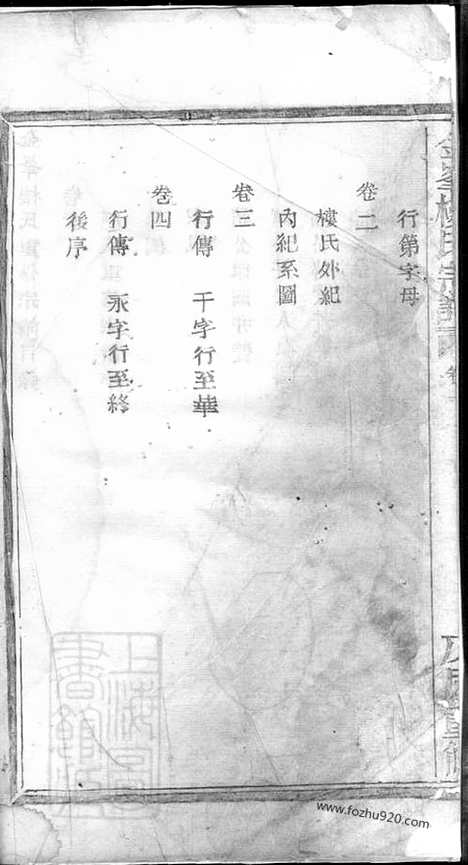 行第字母
卷二
樓氏外紀
內紀系圖
卷三
行傳 千字行至華
卷四
行傳 永字行至終
後序
樓氏宗譜
卷
上海
書館
www.fozhu920.com